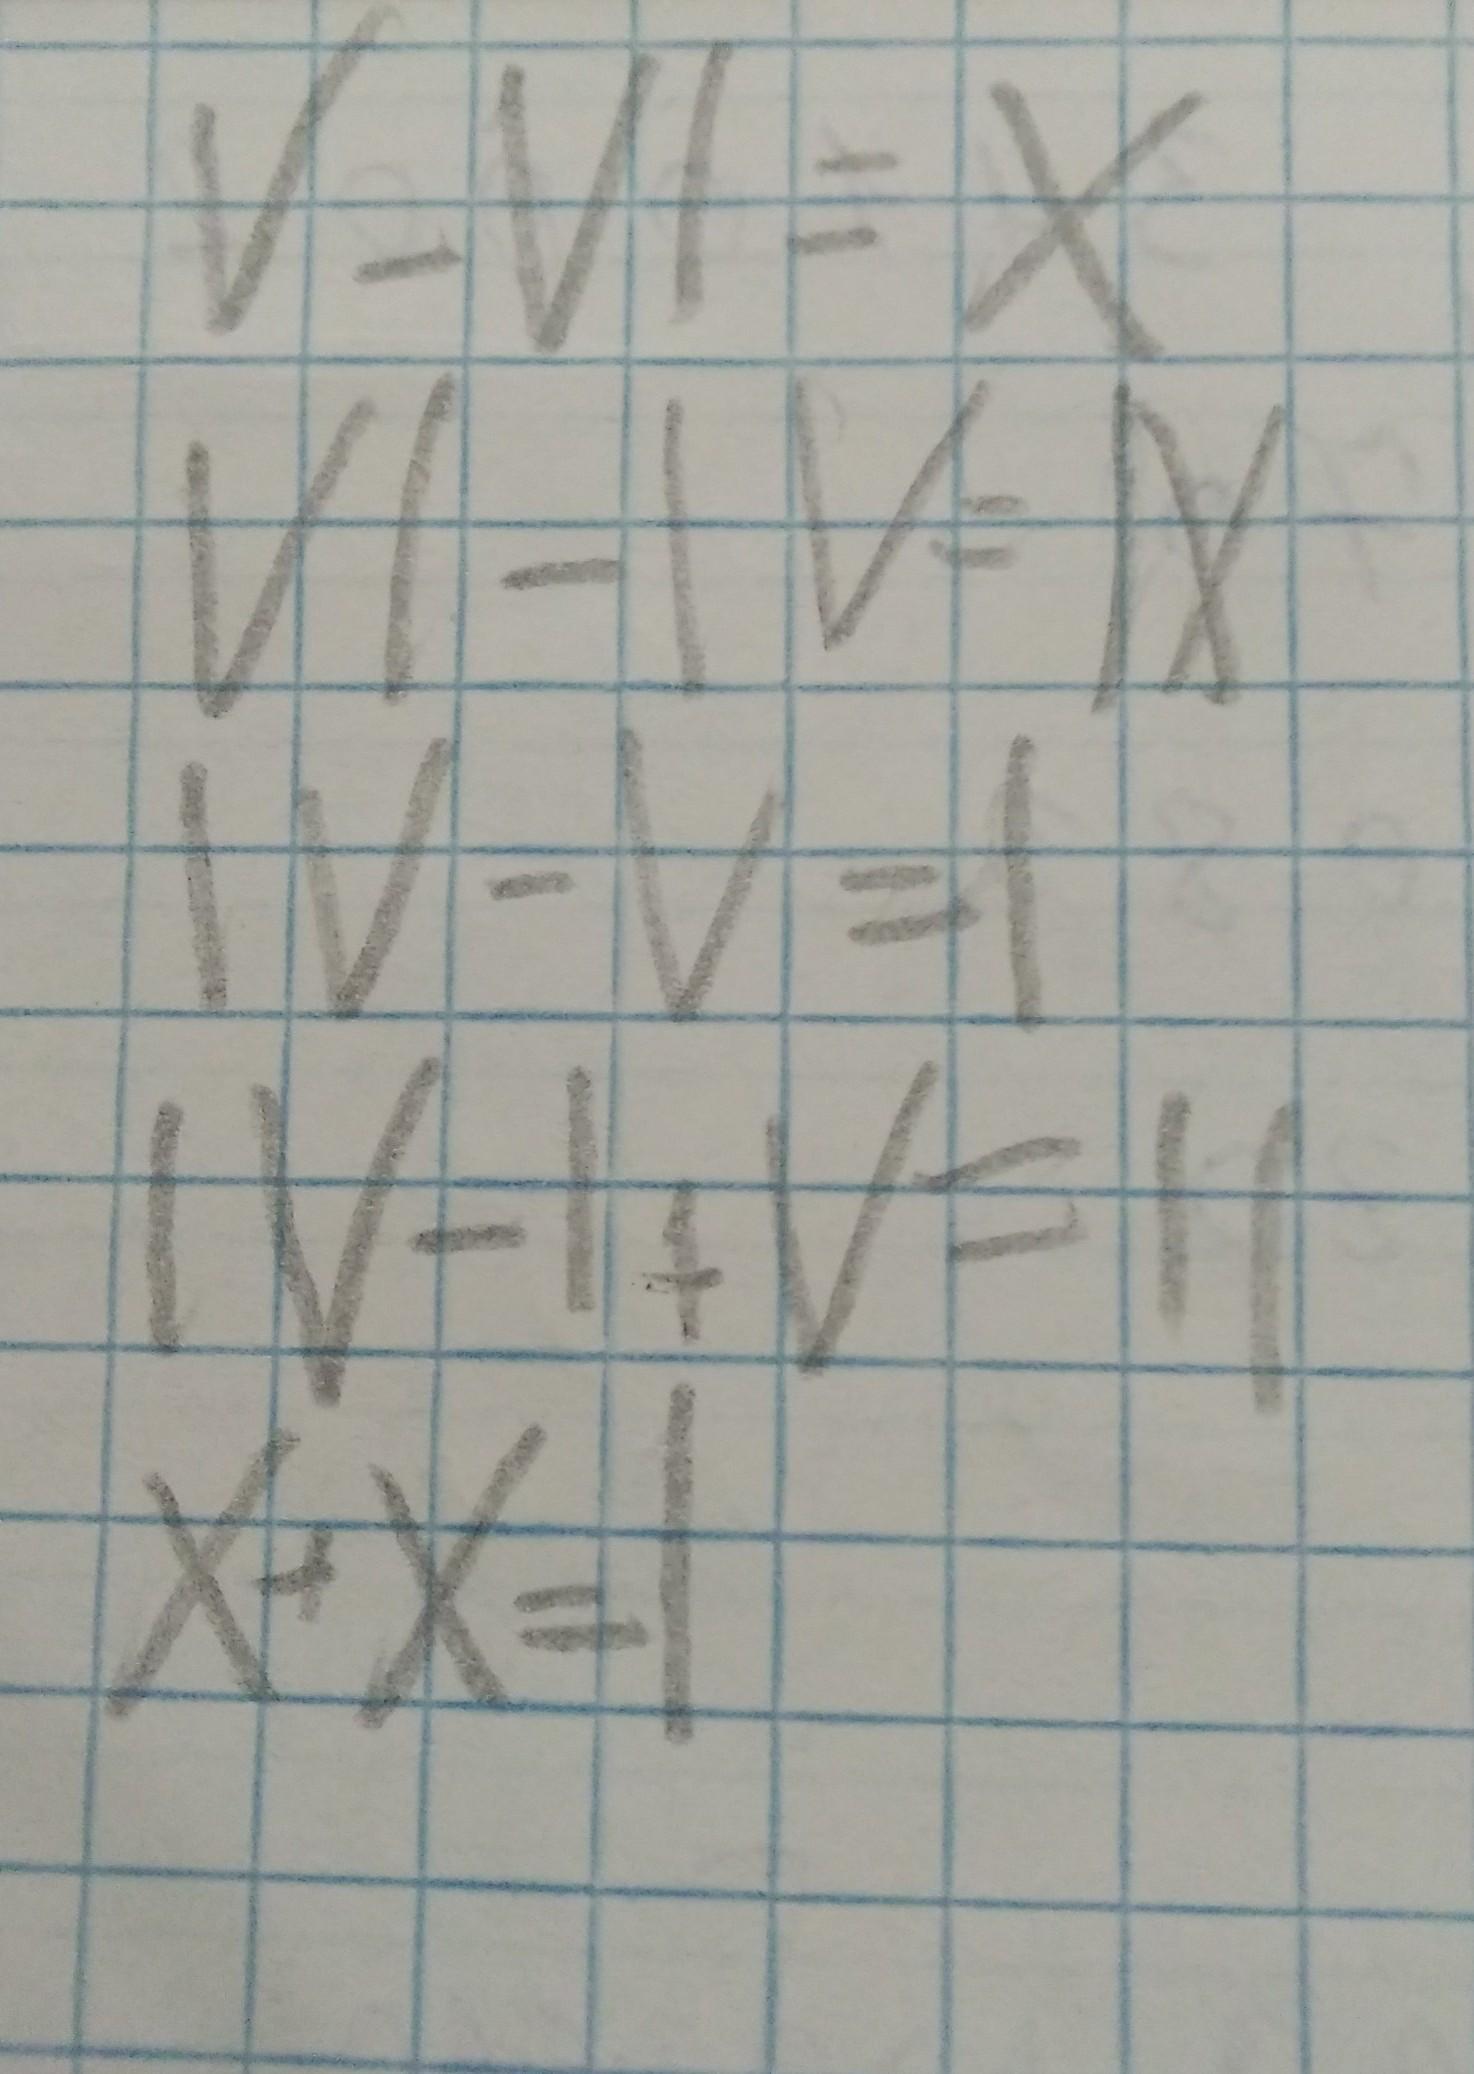 V - VI = X
VI - IV = IX
IV - V = I
IV - I + V = II
X + X = I